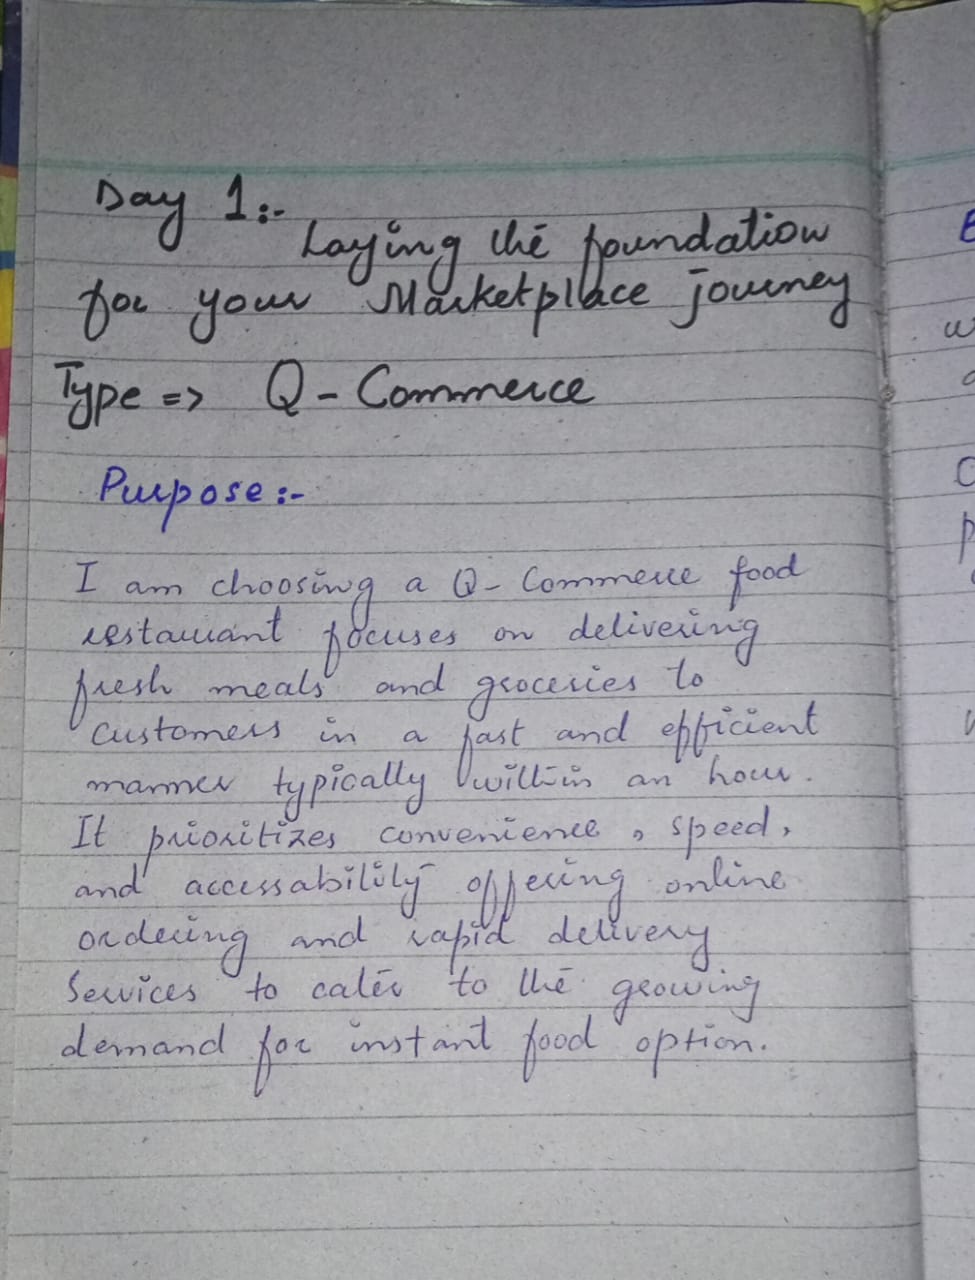 Day 1:-
Laying the foundation
for your Marketplace journey
Type => Q-Commerce
Purpose:-
I am choosing a Q-Commerce food
restaurant focuses on delivering
fresh meals and groceries to
customers in a fast and efficient
manner typically within an hour.
It prioritizes convenience, speed,
and accessability offering online
ordering and rapid delivery
Services to cater to the growing
demand for instant food option.